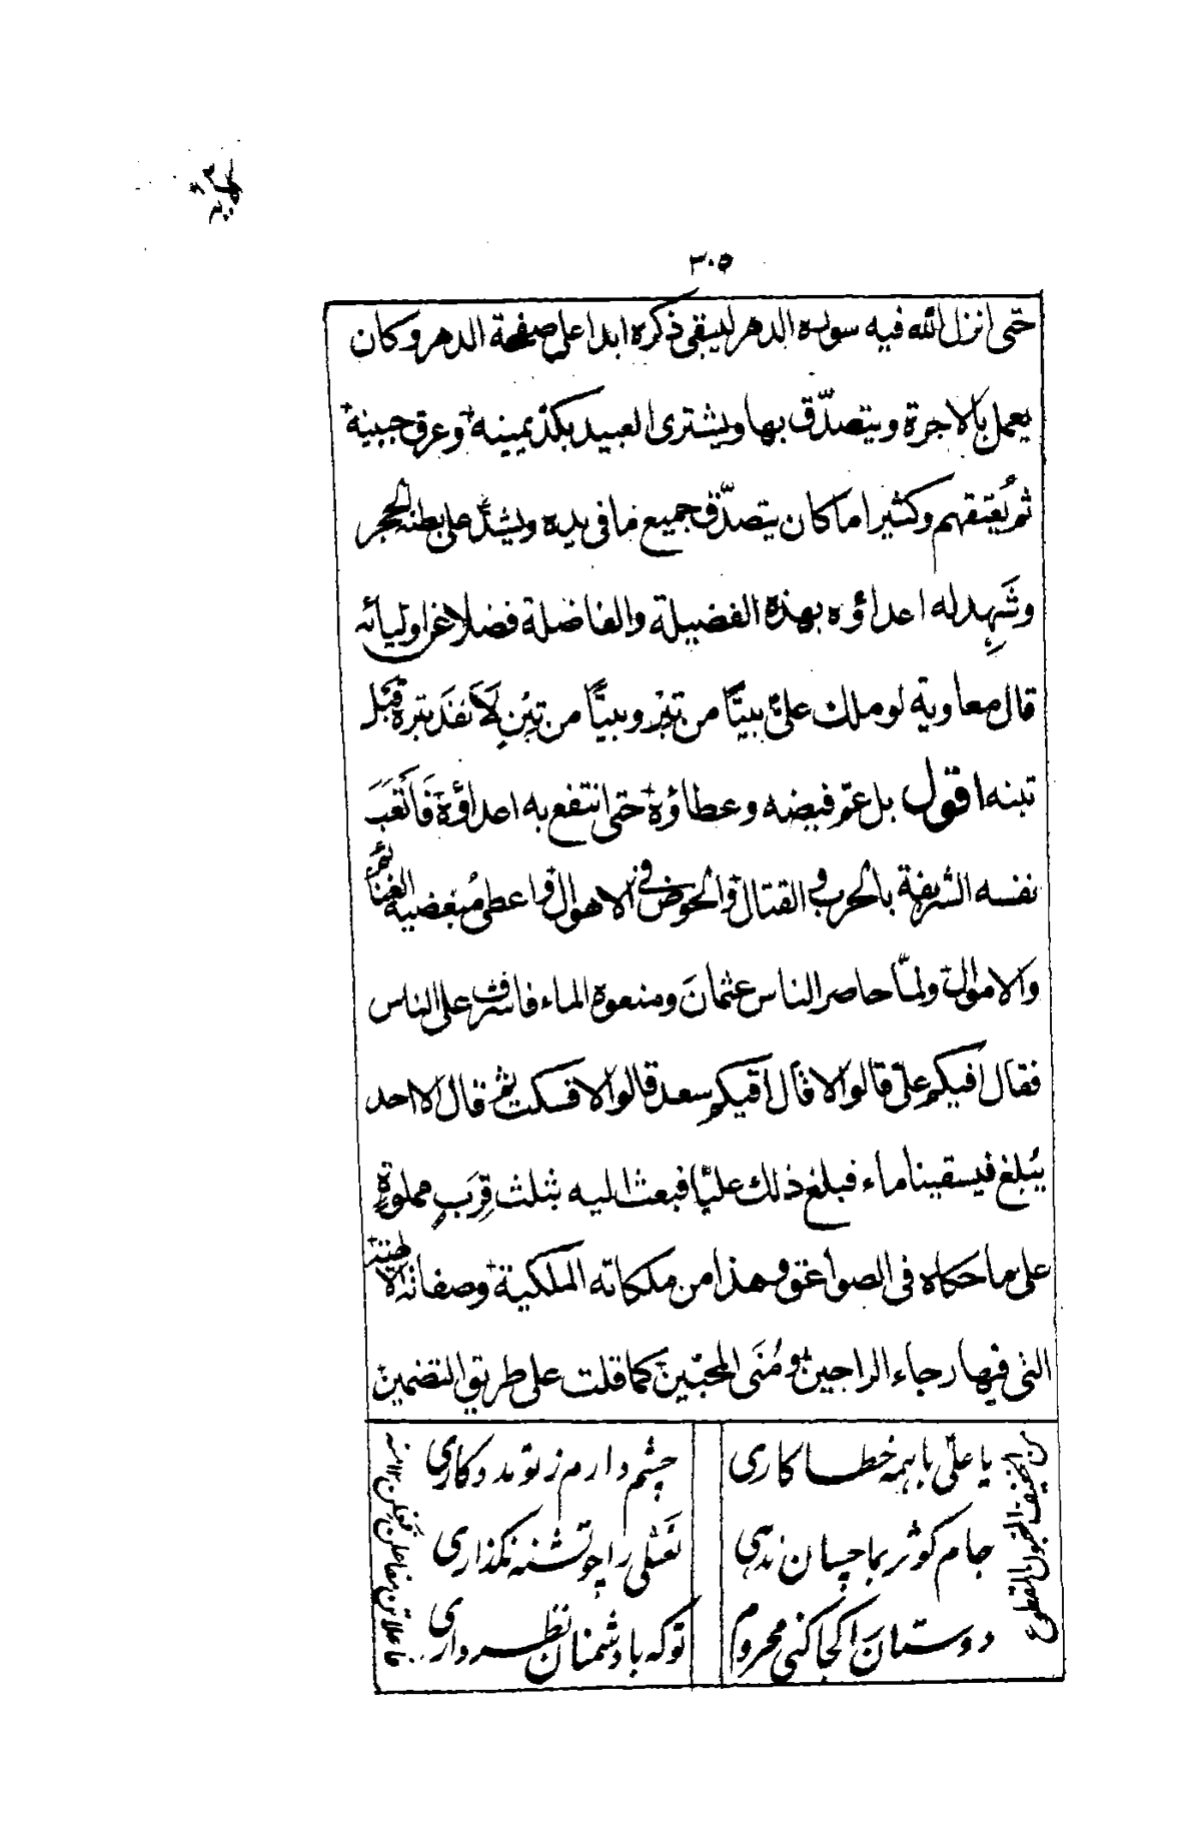 ٣٠٥
حتى انزل الله فيه سورة الدهر ليبقى ذكره ابدا على صفحة الدهر وكان
يعمل بالاجرة ويتصدّق بها ويشترى العبيد بكدّ يمينه وعرق جبينه
ثم يُعتقهم وكثيرا ما كان يتصدّق جميع ما فى يده ويشدّ على بطنه الحجر
وشَهِد له اعداؤه بهذه الفضيلة والفاضلة فضلا عن اوليائه
قال معاوية لو ملك علىٌّ بيتًا من تِبْر وبيتًا من تِبْنٍ لَاَنفَدَ تبره قَبْل
تبنه اقول بل عمّ فيضه وعطاؤه حتى انتفع به اعداؤه فَاَتعَبَ
نفسه الشريفة بالحرب و القتال والخوض فى الاهوال و اعطى مُبغضيه الغنائم
والاموال ولمّا حاصر الناس عثمانَ ومنعوه الماء فاشرف على الناس
فقال أفيكم علىّ قالوا لا قال أفيكم سعد قالوا لا فسكت ثم قال الا احد
يُبلغ فيسقينا ماء فبلغ ذلك عليًّا فبعث اليه بثلث قِرَبٍ مملوة
على ما حكاه فى الصواعق وهذا من ملكاته الملكية وصفاته الالهية
التى فيها رجاء الراجين ومُنَى المحبّين كما قلت على طريق التضمين
من الخفيف المخبون المقطوع
يا علىّ با همه خطا كارى
چشم دارم ز تو مددكارى
جام كوثر بما چسان ندهى
نَعثلى را چو تشنه نگذارى
دوستان را كجا كنى محروم
تو كه با دشمنان نظر دارى
فاعلاتن مفاعلن فعلن